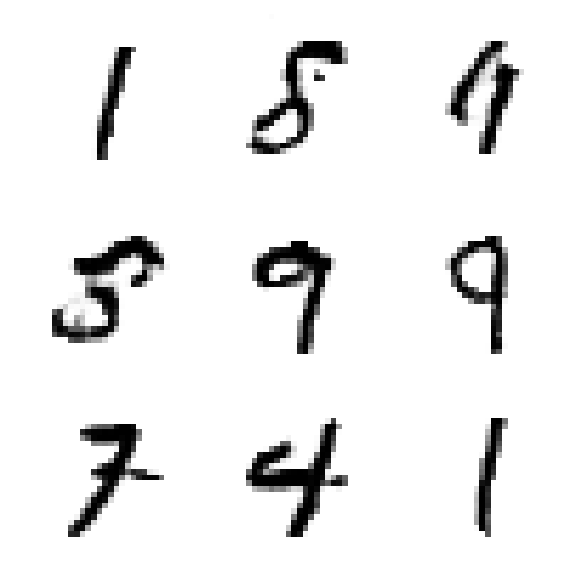 1 8 9
5 9 9
7 4 1